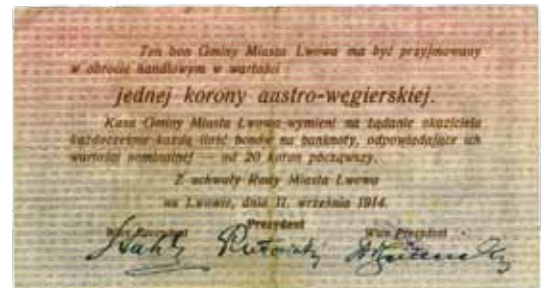 Ten bon Gminy Miasta Lwowa ma być przyjmowany
w obrocie handlowym w wartości :
jednej korony austro-węgierskiej.
Kasa Gminy Miasta Lwowa wymieni na żądanie okaziciela
każdocześnie każdą ilość bonów na banknoty, odpowiadające ich
wartości nominalnej — od 20 koron począwszy.
Z uchwały Rady Miasta Lwowa
we Lwowie, dnia 11. września 1914.
Prezydent
Wice Prezydent Wice Prezydent
Rutowski